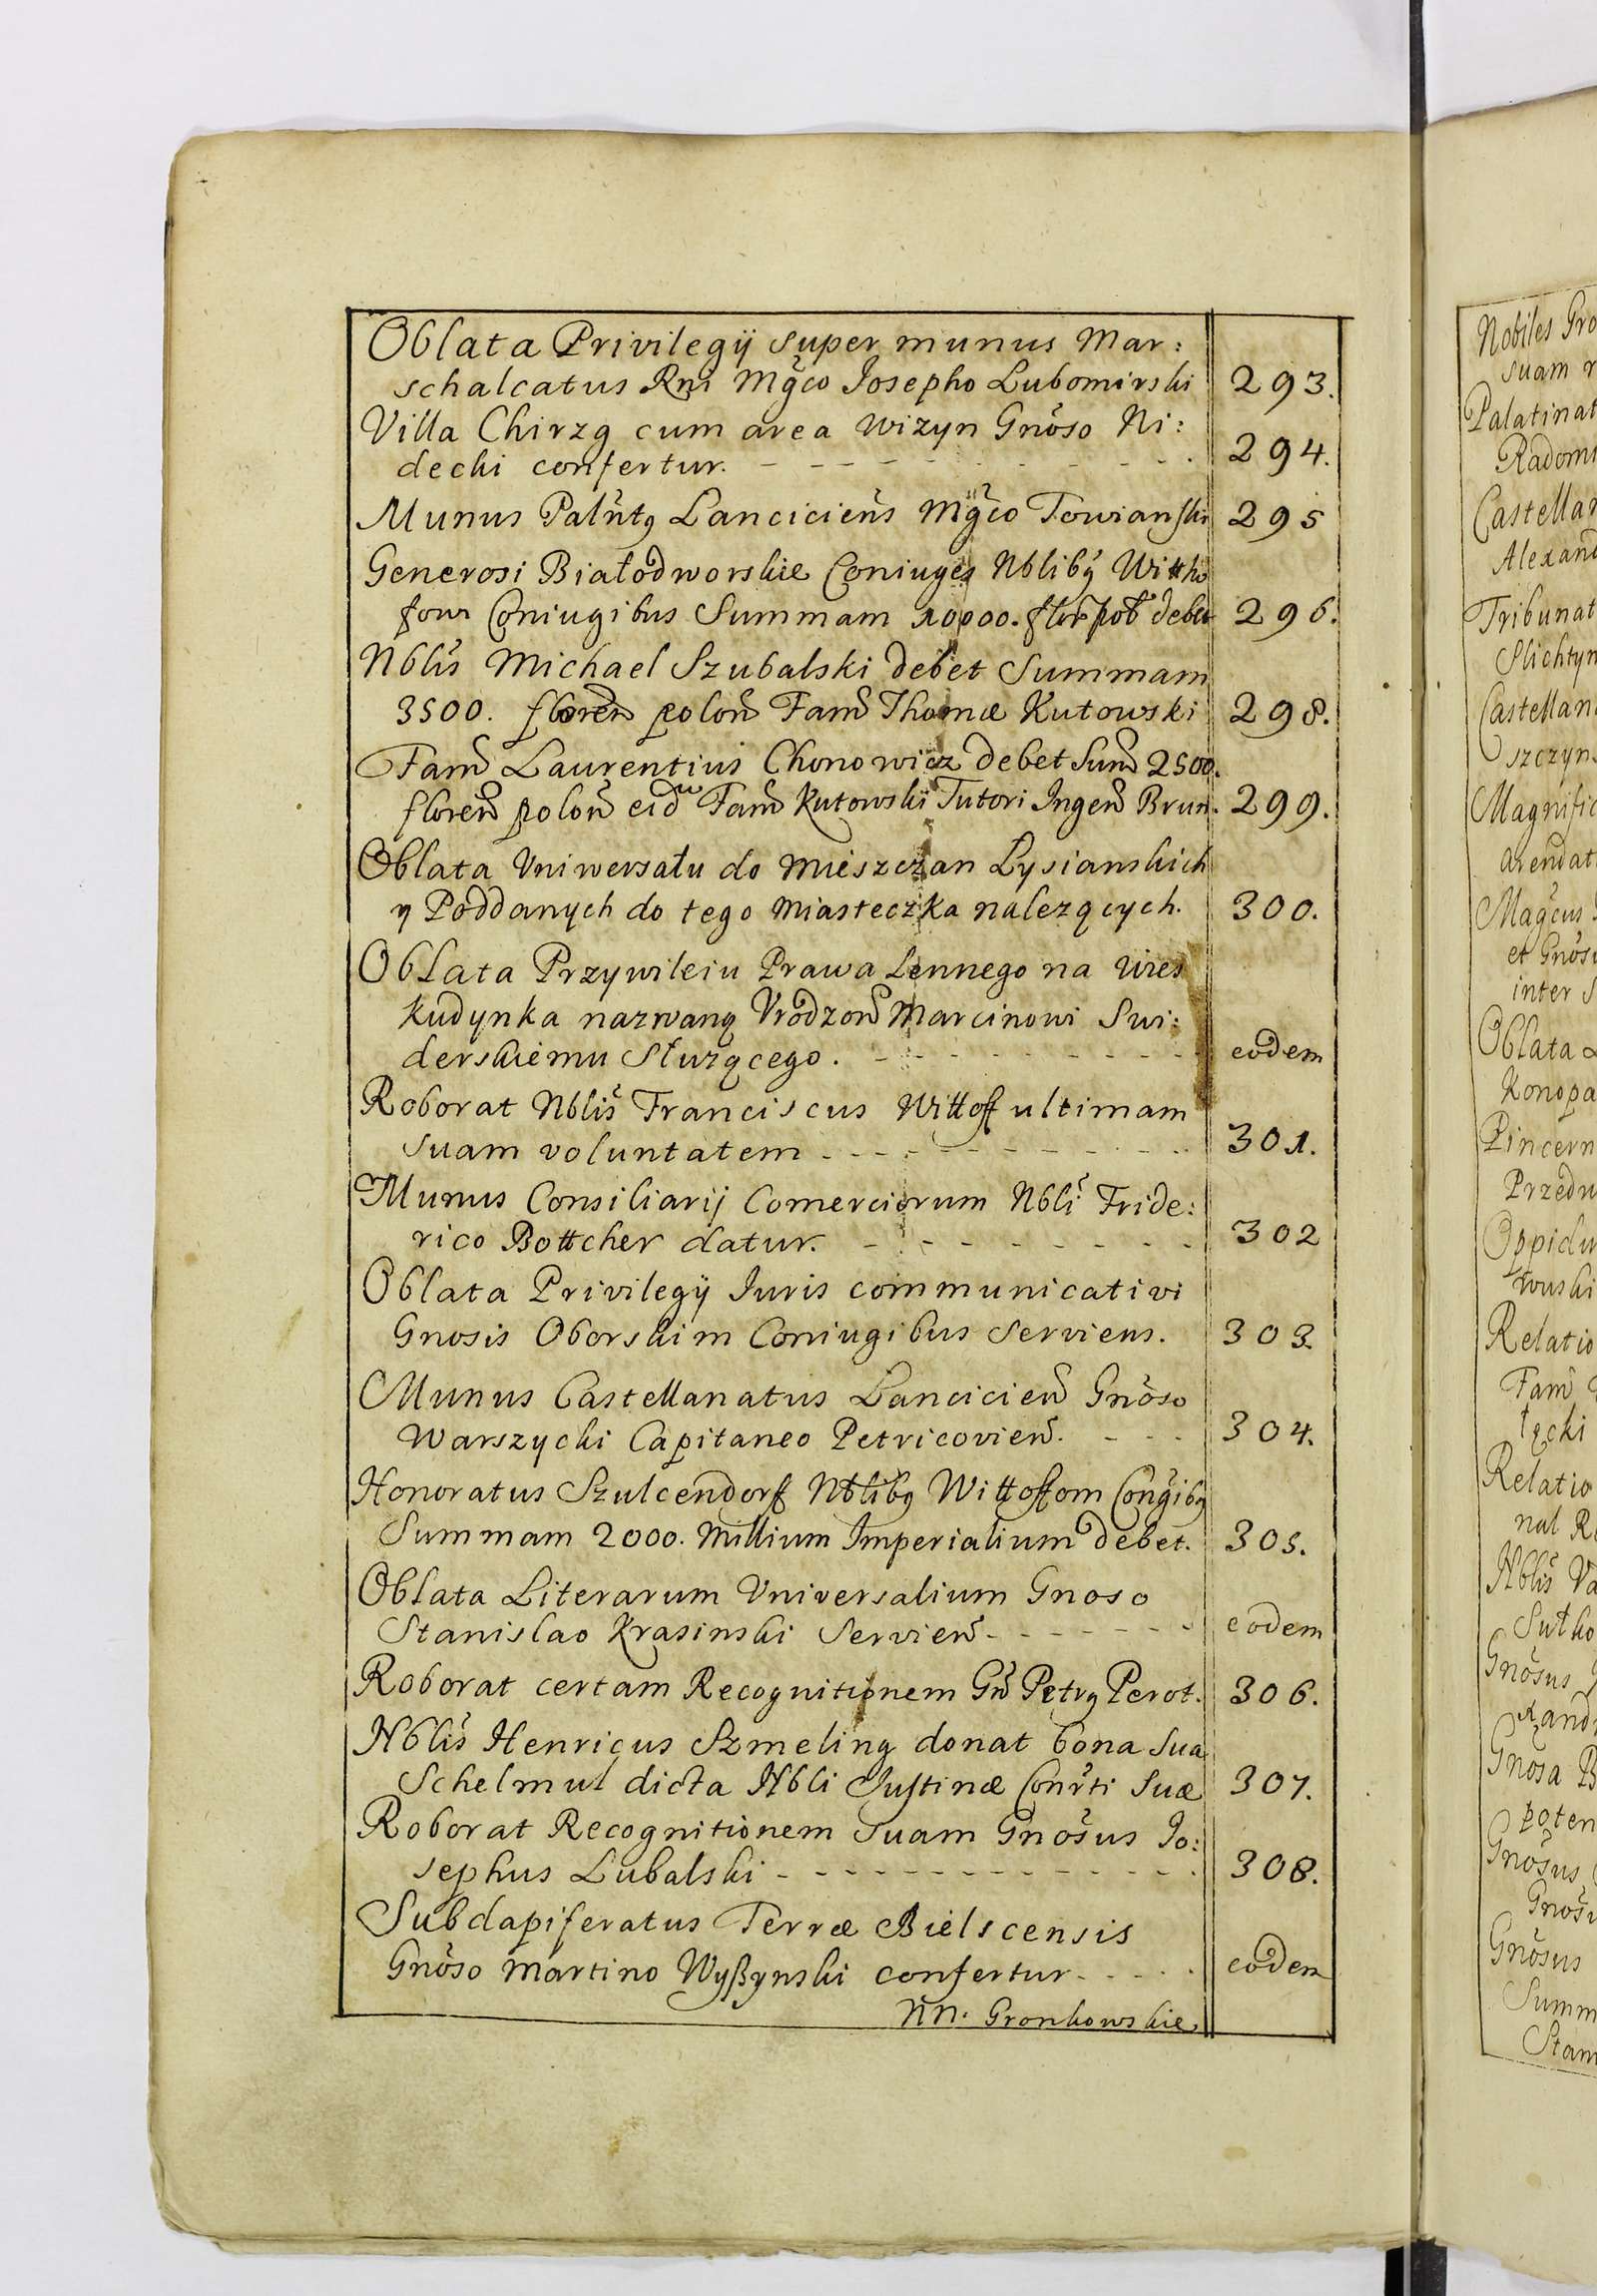 Oblata Privilegÿ super munus Mar:
schalcatus Rni Mgco Josepho Lubomirski 293.
Villa Chirzą cum area Wizyn Gnoso Ni:
decki confertur. - - - - - - - - 294.
Munus Palntg Lanciciens Mgco Towianski 295
Generosi Białodworskie Coniuges Nblibg
Coniugibus Summam 10000. flor pol debet 296.
Nblis Michael Szubalski debet Summam
3500. floren polon Fam Thomæ Kutowski 298.
Fam Laurentius Chonowicz debet Sum 2500.
floren polon eid Fam Kutowski Tutori Ingen Brun. 299.
Oblata Vniwersału do Mieszczan Lysianskich
y Poddanych do tego Miasteczka nalezących. 300.
Oblata Przywileiu Prawa Lennego na Wies
Kudynka nazwaną Vrodzon Marcinowi Swi:
derskiemu Słuzącego. - - - - - - - - eodem
Roborat Nblis Franciscus Wittoff ultimam
suam voluntatem - - - - - - - - 301.
Munus Consiliarij Comerciorum Nbli Fride:
rico Bottcher datur. - - - - - - - 302
Oblata Privilegÿ Iuris communicativi
Gnosis Oborskim Coniugibus Serviens. 303.
Munus Castellanatus Lancicien Gnoso
Warszycki Capitaneo Petricovien. - - - 304.
Honoratus Szulcendorff Nblibg Wittoffom Congibg
Summam 2000. Millium Imperialium debet. 305.
Oblata Literarum Vniversalium Gnoso
Stanislao Krasinski Servien - - - - - - eodem
Roborat certam Recognitionem Gn Petrg Perot. 306.
Nblis Henricus Szmeling donat bona Sua
Schelmul dicta Nbli Justinæ Conrti Suæ 307.
Roborat Recognitionem Suam Gnosus Jo:
sephus Lubalski - - - - - - - - - - - 308.
Subdapiferatus Terræ Bielscensis
Gnoso Martino Wyßynski confertur - - - - - eodem
NN. Gronkowskie
Nobiles Gro
suam r
Palatinat
Radomi
Castellan
Alexand
Tribunat
Slichtyn
Castellan
szczyn
Magnific
arendat
Magcus
et Gnos
inter S
Oblata
Konopa
Pincern
Przedw
Oppidu
wski
Relatio
Fam
tęcki
Relatio
nal Re
Nblis Va
Sutko
Gnosus
xand
Gnosa B
poten
Gnosus
Gnos
Gnosus
Summ
Stan